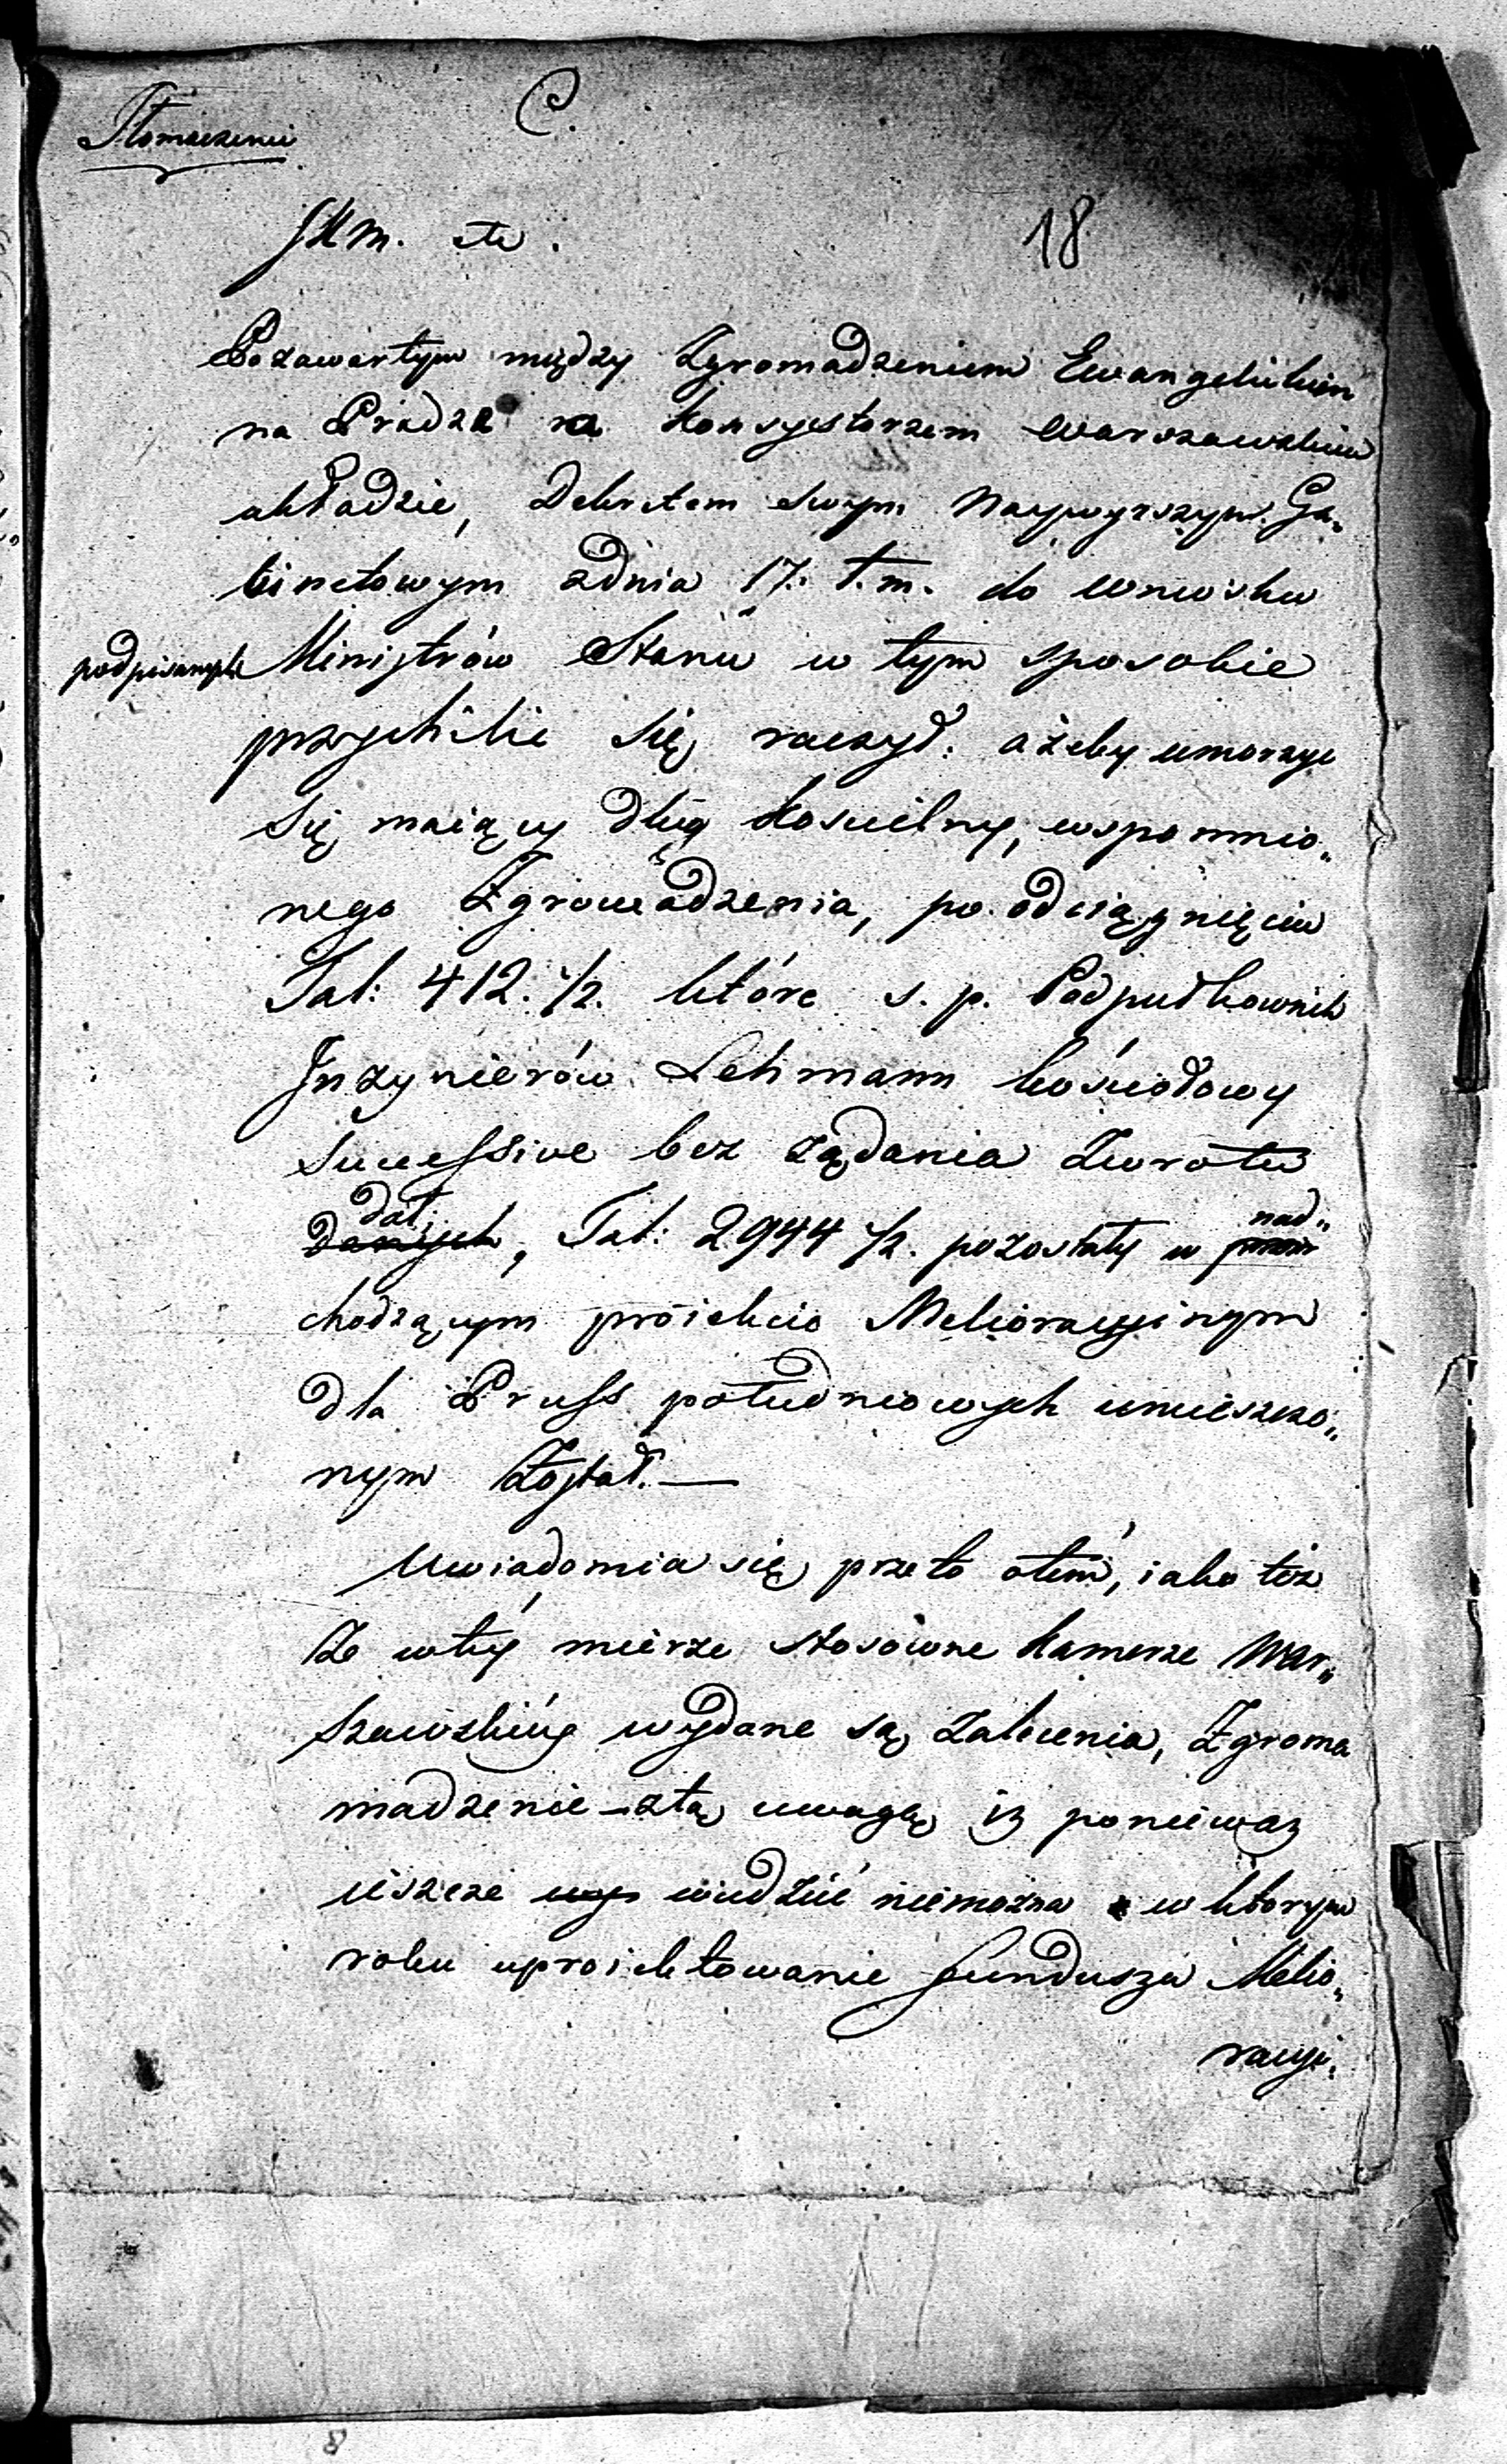 C.
Tłomaczenie
JKM. etc.
18
Pozawartym między Zgromadzeniem Ewangelickim
na Pradze a Konsystorzem Warszawskim
układzie, Dekretem swym Naywyższym Ga„
binetowym zdnia 17. t.m. do wniosku
podpisanych Ministrów Stanu w tym sposobie
przychilić się raczył: ażeby umorzyć
się maiący dług kościelny, wspomnio„
nego Zgromadzenia, po odciągnięciu
Tal: 412. 1/2. które s. p. Podpułkownik
Inzynierów Lehmann kościołowy
Successive bez żądania Zwrotu
dał, Tal: 2944 1/2. pozostały w nad„
chodzącym proiekcie Melioracyinym
dla Pruss południowych umieszczo„
nym Został. —
Uwiadomia się przeto otém, iako téż
Że wtéy mierze stosowne Kamerze War„
szawskiéy wydane są Zalecenia, Zgroma
madzenie ztą uwagą iż ponieważ
ieszcze wiedzieć niemożna w którym
roku uproiektowanie funduszu Melio„
racyi.
8